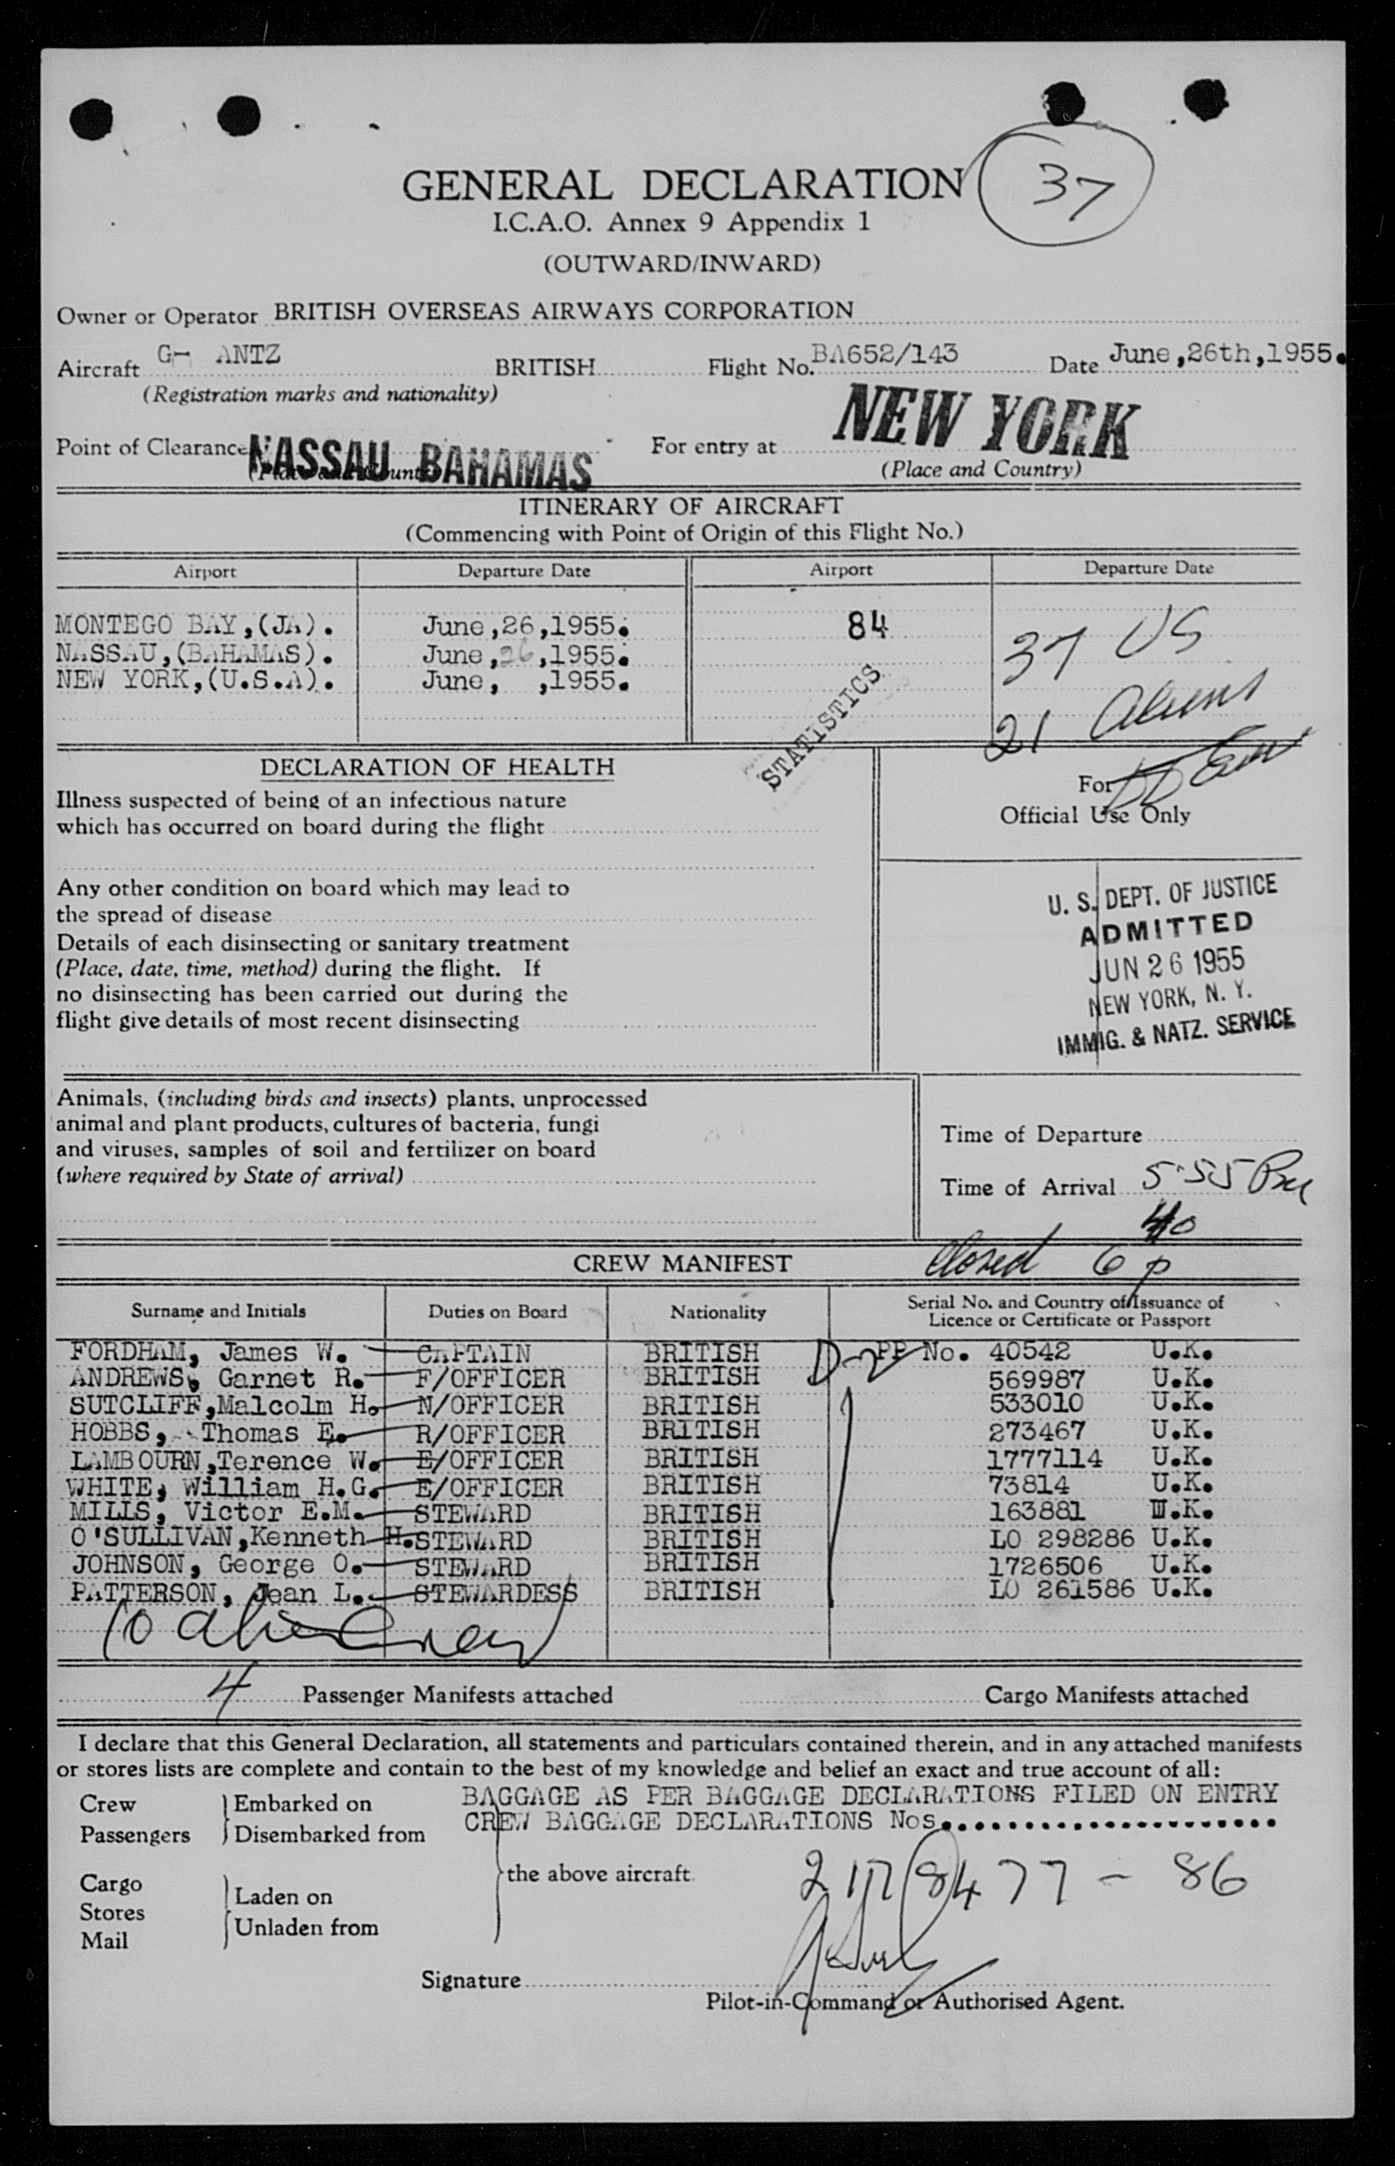 37
GENERAL DECLARATION
I.C.A.O. Annex 9 Appendix 1
(OUTWARD/INWARD)
Owner or Operator BRITISH OVERSEAS AIRWAYS CORPORATION
Aircraft G- ANTZ BRITISH Flight No. BA652/143 Date June,26th,1955.
(Registration marks and nationality)
Point of Clearance NASSAU BAHAMAS For entry at NEW YORK
(Place and Country) (Place and Country)
ITINERARY OF AIRCRAFT
(Commencing with Point of Origin of this Flight No.)
Airport Departure Date Airport Departure Date
MONTEGO BAY,(JA). June,26,1955. 84 37 US
NASSAU,(BAHAMAS). June,26,1955.
NEW YORK,(U.S.A). June, ,1955.
21 Aliens
STATISTICS
DECLARATION OF HEALTH
Illness suspected of being of an infectious nature
which has occurred on board during the flight
For
Official Use Only
Any other condition on board which may lead to
the spread of disease
Details of each disinsecting or sanitary treatment
(Place, date, time, method) during the flight. If
no disinsecting has been carried out during the
flight give details of most recent disinsecting
U. S. DEPT. OF JUSTICE
ADMITTED
JUN 26 1955
NEW YORK, N. Y.
IMMIG. & NATZ. SERVICE
Animals, (including birds and insects) plants, unprocessed
animal and plant products, cultures of bacteria, fungi
and viruses, samples of soil and fertilizer on board
(where required by State of arrival)
Time of Departure
Time of Arrival 5:55 PM
Closed 6 40 p
CREW MANIFEST
Surname and Initials Duties on Board Nationality Serial No. and Country of Issuance of
Licence or Certificate or Passport
FORDHAM, James W. CAPTAIN BRITISH D-2 PP No. 40542 U.K.
ANDREWS, Garnet R. F/OFFICER BRITISH 569987 U.K.
SUTCLIFF,Malcolm H. N/OFFICER BRITISH 533010 U.K.
HOBBS, Thomas E. R/OFFICER BRITISH 273467 U.K.
LAMBOURN,Terence W. E/OFFICER BRITISH 1777114 U.K.
WHITE, William H.G. E/OFFICER BRITISH 73814 U.K.
MILLS, Victor E.M. STEWARD BRITISH 163881 U.K.
O'SULLIVAN,Kenneth H. STEWARD BRITISH LO 298286 U.K.
JOHNSON, George O. STEWARD BRITISH 1726506 U.K.
PATTERSON, Jean L. STEWARDESS BRITISH LO 261586 U.K.
10 alien crew
4 Passenger Manifests attached Cargo Manifests attached
I declare that this General Declaration, all statements and particulars contained therein, and in any attached manifests
or stores lists are complete and contain to the best of my knowledge and belief an exact and true account of all:
BAGGAGE AS PER BAGGAGE DECLARATIONS FILED ON ENTRY
Crew Embarked on
CREW BAGGAGE DECLARATIONS Nos.....................
Passengers Disembarked from
the above aircraft.
2178477 - 86
Cargo Laden on
Stores
Mail Unladen from
Signature
Pilot-in-Command or Authorised Agent.